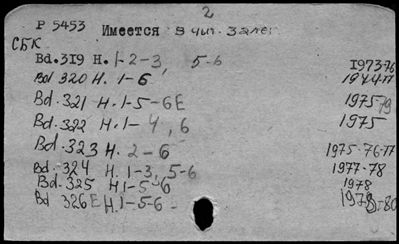 2
P 5453 Имеется в чит. зале
СБК
Bd.319 H. 1-2-3, 5-6 1973-76
Bd 320 H. 1-6
Bd.321 H. 1-5-6E 1975
Bd.322 H. 1- 4, 6 1975
Bd.323 H. 2-6 1975-76-77
Bd.324 H. 1-3, 5-6 1977-78
Bd.325 H 1-5, 6 1978
Bd 326E H. 1-5-6